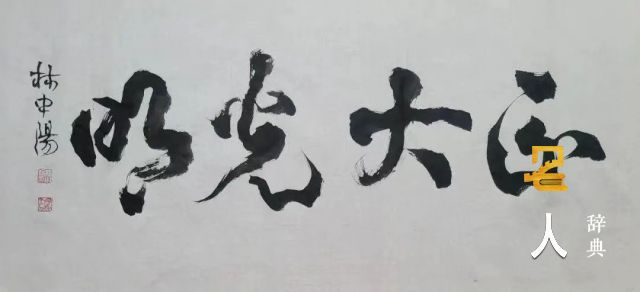 正大光明
林中陽
名人
辞典